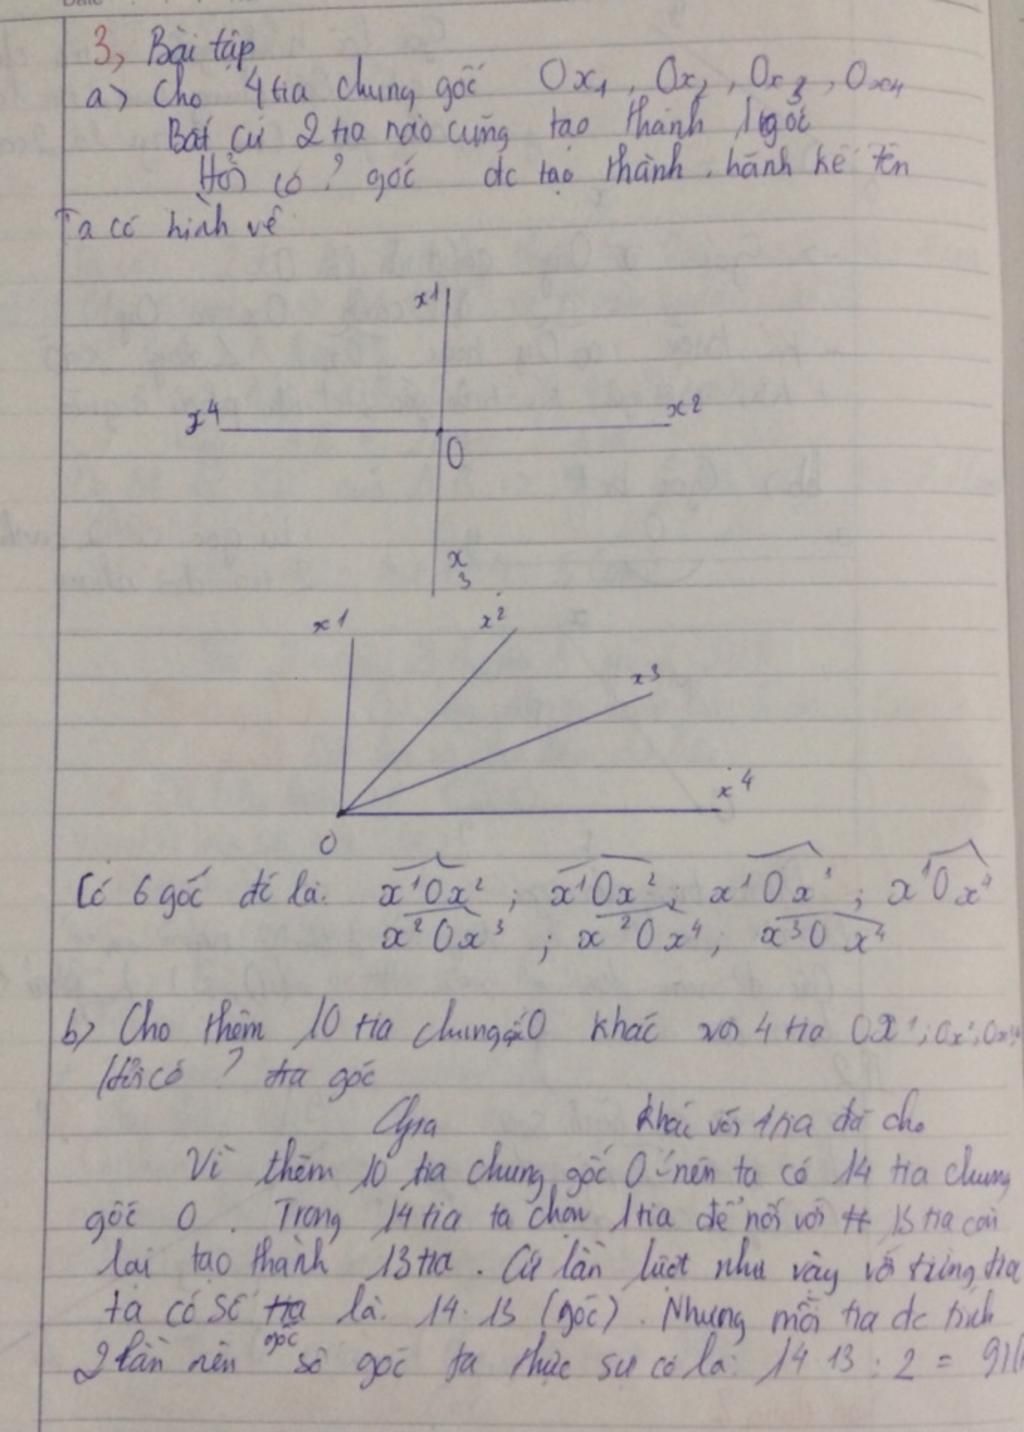 3, Bài tập
a) Cho 4 tia chung gốc Ox₁, Ox₂, Ox₃, Ox₄
Bất cứ 2 tia nào cũng tạo thành 1 góc
Hỏi có ? góc dc tạo thành. hãnh kể tên
Ta có hình vẽ
x1
x4 x2
O
x3
x1 x2
x3
x4
O
Có 6 góc đó là: x¹Ox²; x¹Ox²; x¹Ox³; x¹Ox⁴
x²Ox³; x²Ox⁴; x³Ox⁴
b) Cho thêm 10 tia chung gốc O khác với 4 tia Ox¹; Ox²; Ox³
Hỏi có ? tia góc
khác với 4 tia đã cho
Vì thêm 10 tia chung gốc O nên ta có 14 tia chung
gốc O. Trong 14 tia ta chọn 1 tia để nối với 13 tia còn
lại tạo thành 13 tia. Cứ lần lượt như vậy với từng tia
ta có số tia góc là: 14.13 (góc). Nhưng mỗi tia dc tính
2 lần nên số góc ta thực sự có là: 14 13 : 2 = 91